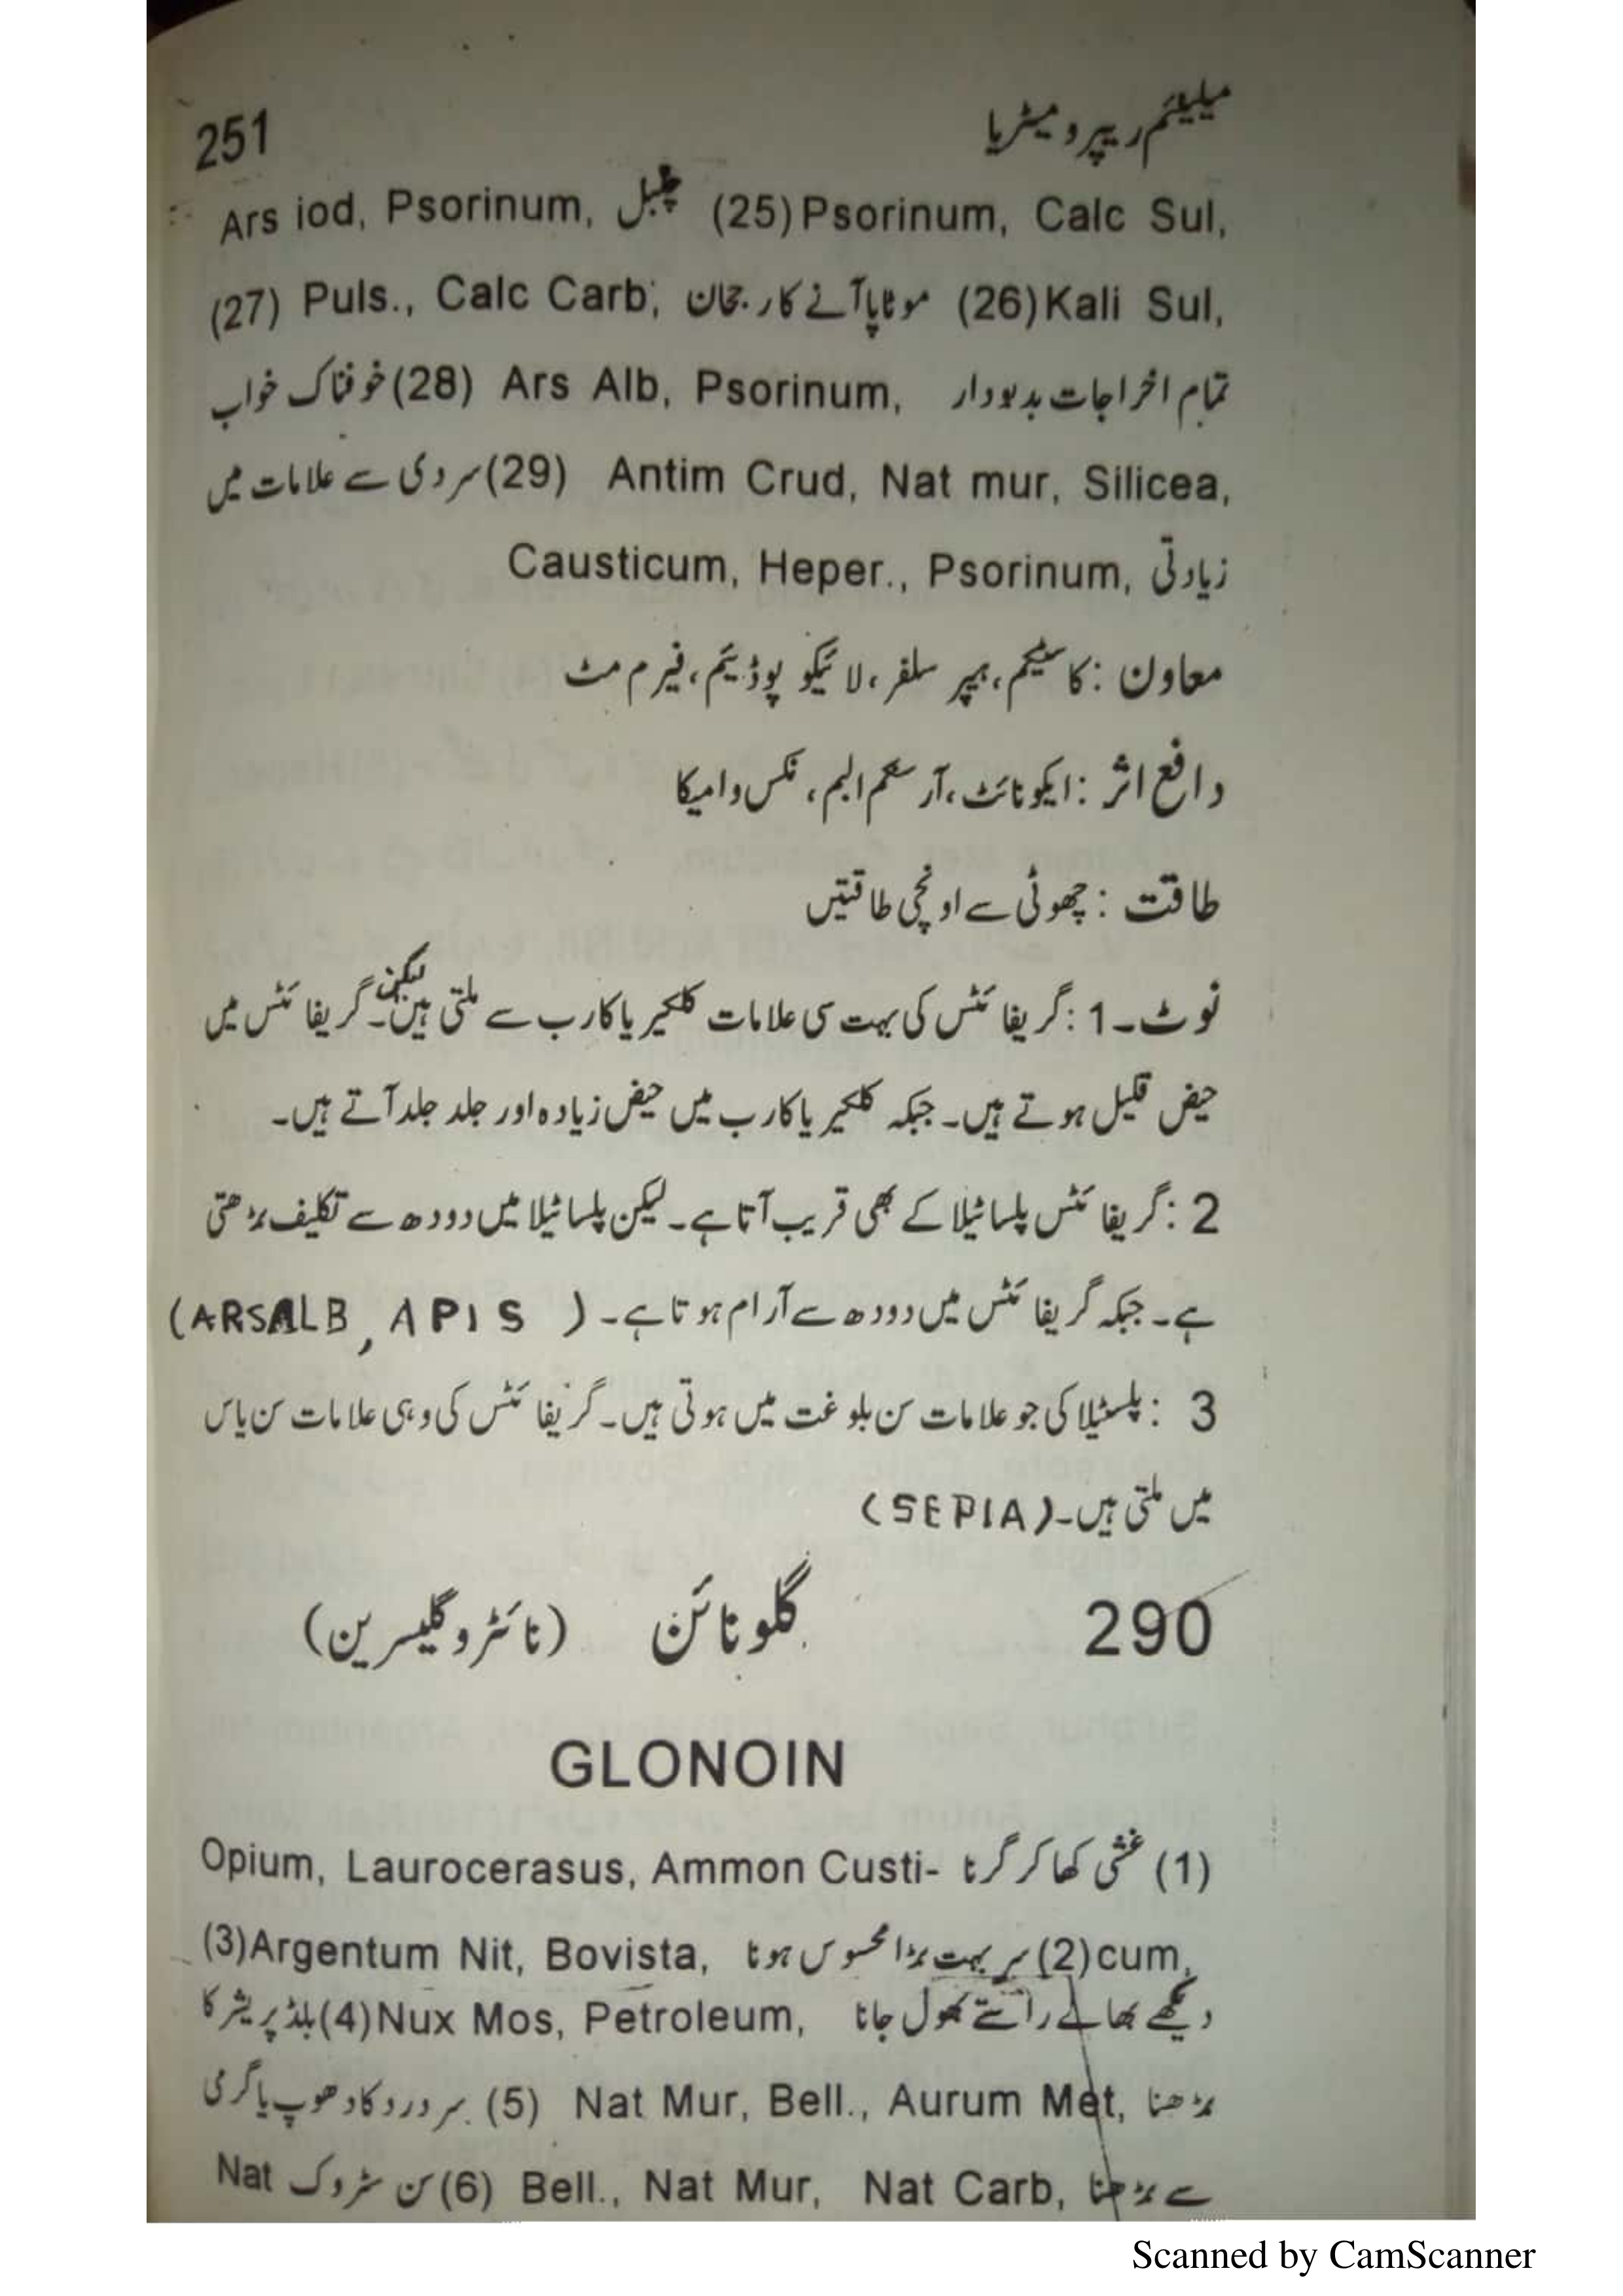 251
میلینیم ریپرومیٹریا
Ars iod, Psorinum, چنبل (25) Psorinum, Calc Sul,
(27) Puls., Calc Carb, موٹاپا آنے کا رجحان (26) Kali Sul,
تمام اخراجات بدبودار Ars Alb, Psorinum, (28) خوفناک خواب
Antim Crud, Nat mur, Silicea, (29) سردی سے علامات میں
زیادتی Causticum, Heper., Psorinum,
معاون : کاسٹیکم، ہیپر سلفر، لائیکو پوڈیئم، فیرم مٹ
دافع اثر : ایکونائٹ، آرسنکم البم، نکس وامیکا
طاقت : چھوٹی سے اونچی طاقتیں
نوٹ۔1 : گریفائٹس کی بہت سی علامات کلکیریا کارب سے ملتی ہیں۔ لیکن گریفائٹس میں
حیض قلیل ہوتے ہیں۔ جبکہ کلکیریا کارب میں حیض زیادہ اور جلد جلد آتے ہیں۔
2 : گریفائٹس پلساٹیلا کے بھی قریب آتا ہے۔ لیکن پلساٹیلا میں دودھ سے تکلیف بڑھتی
ہے۔ جبکہ گریفائٹس میں دودھ سے آرام ہوتا ہے۔ (ARSALB, APIS)
3 : پلسٹیلا کی جو علامات سن بلوغت میں ہوتی ہیں۔ گریفائٹس کی وہی علامات سن یاس
میں ملتی ہیں۔ (SEPIA)
290 گلونائن (نائٹروگلیسرین)
GLONOIN
(1) غشی کھا کر گرنا Opium, Laurocerasus, Ammon Custi-
cum, (2) سر بہت بڑا محسوس ہونا Argentum Nit, Bovista, (3)
دیکھے بھالے راستے بھول جانا Nux Mos, Petroleum, (4) بلڈ پریشر کا
بڑھنا Nat Mur, Bell., Aurum Met, (5) سر درد کا دھوپ یا گرمی
سے بڑھنا Bell., Nat Mur, Nat Carb, (6) سن سٹروک Nat
Scanned by CamScanner